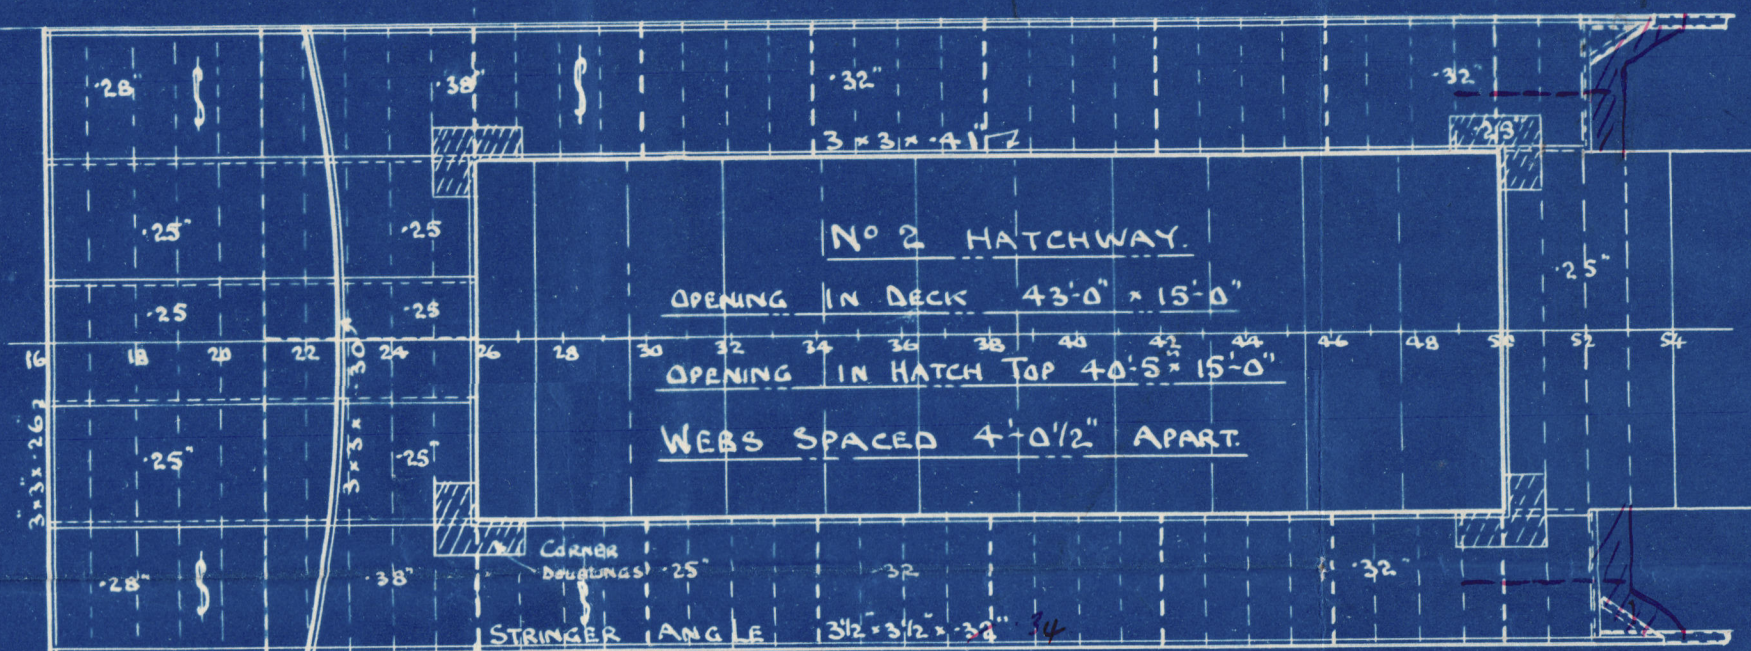 ·28" ·38" ·32" ·32"
3 × 3 × ·41"
·28"
·25" ·25
Nº 2 HATCHWAY.
·25"
OPENING IN DECK 43'-0" × 15'-0"
·25 ·25
16 18 20 22 24 26 28 30 32 34 36 38 40 42 44 46 48 50 52 54
OPENING IN HATCH TOP 40'-5" × 15'-0"
3 × 3 × ·30
3" × 3" × ·26
WEBS SPACED 4'-0 1/2" APART.
·25" ·25"
CORNER
DOUBLINGS ·25" ·32 ·32"
·28" ·38"
STRINGER ANGLE 3 1/2" × 3 1/2" × ·32" 34